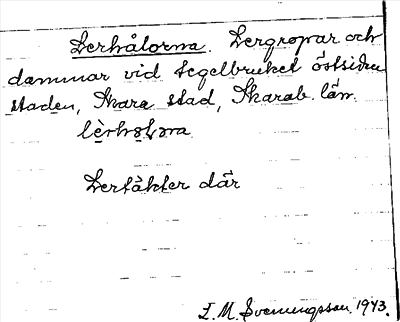 Lerhålorna. Lergropar och
dammar vid tegelbruket östsidan
staden, Skara stad, Skarab. län.
lèrhɷlᴐrna
Lertäkter där
E. M. Svenungsson 1943.